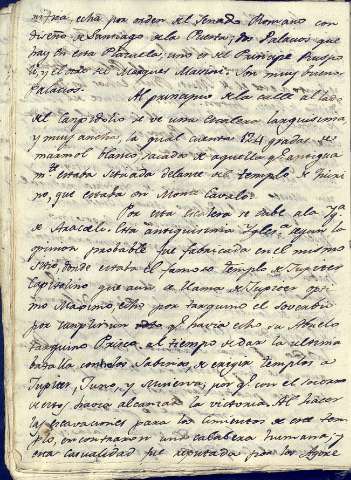 echa por orden del Senado Romano con
diseño de Santiago de la Puerta; dos Palacios que
hay en esta Plazuela, uno es del Principe
y el otro del Marques Son muy buenos
Palacios.
Al principio de la cuesta al lado
del Capidolio se ve una escalera larguissima,
y muy ancha, la qual cuenta 124 gradas de
marmol blanco sacado de aquella qe. antigua
mte. estaba situada delante del templo de Quiri
no, que estaba en Monte Cavalo.
Por esta escalera se sube a la Yga.
de Araceli. Esta antiquissima Yglesa. segun la
opinion probable fue fabricada en el mismo
sitio, donde estaba el famoso templo de Jupiter
Capitolino que aun se llama de Jupiter opti
mo Maximo, echo por tarquino el sobervio
por qe. havia echo su Abuelo
tarquino Prisco, al tiempo de dar la ultima
batalla con los Sabinos, de erigir templos a
Jupiter, Juno, y Minerva; por qe. con el
de estos havia alcanzar la victoria. Al hacer
las escavaciones para los cimientos de este tem
plo, encontraron una calabera humana; y
esta casualidad fue reputada por los Agore